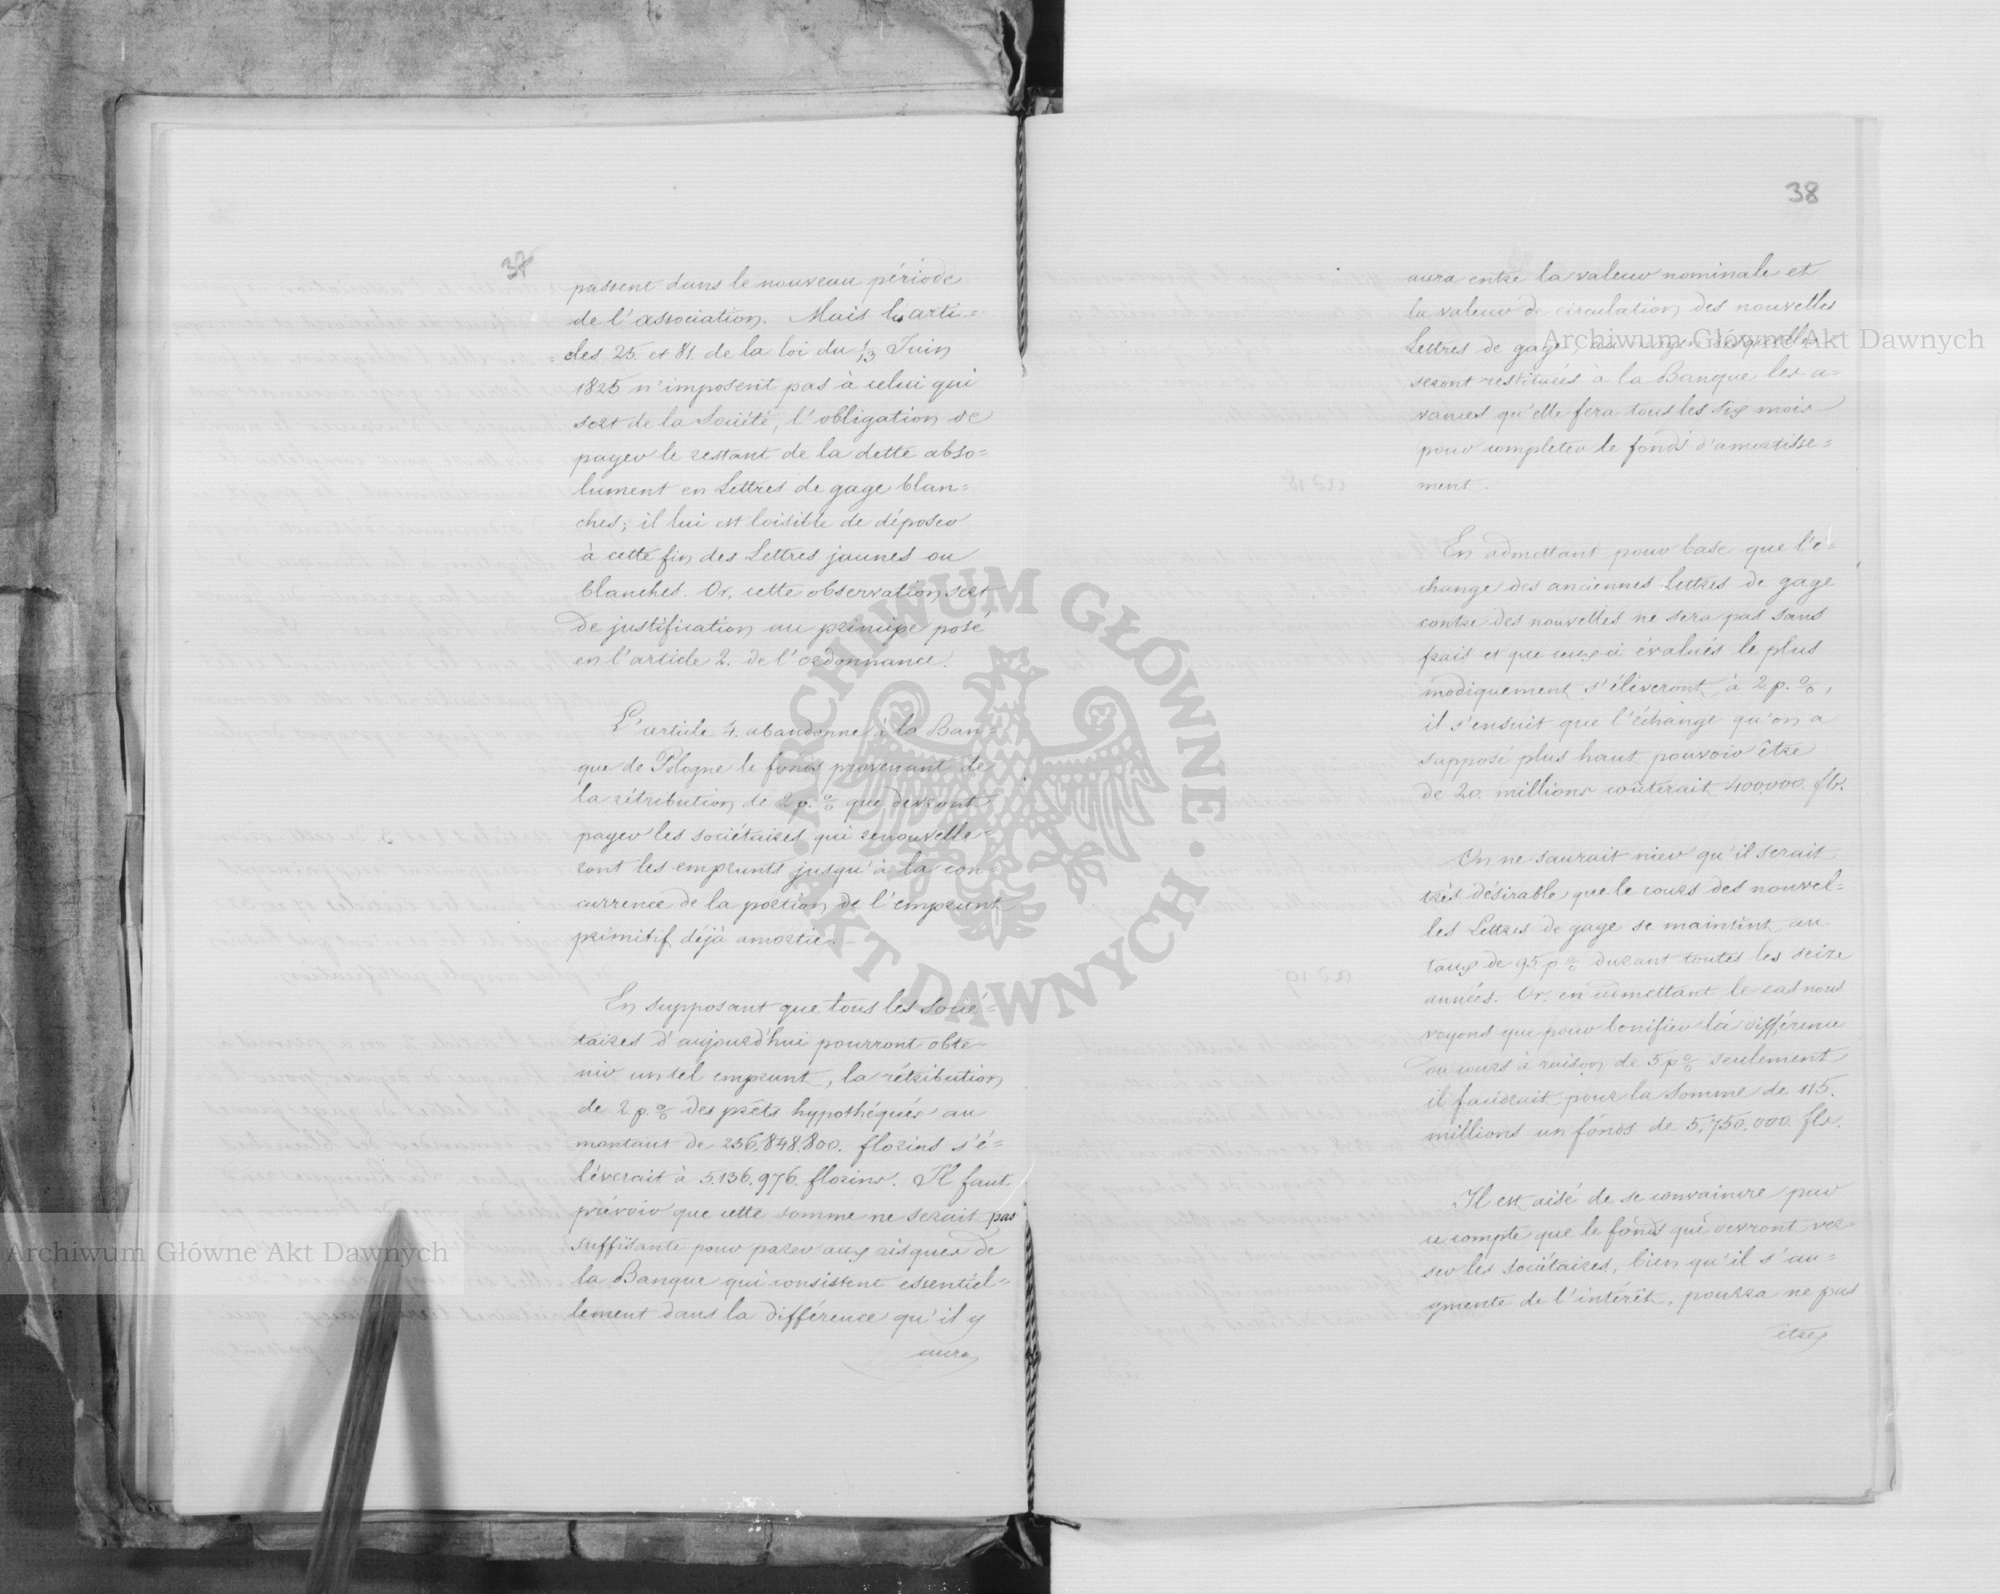 37
passent dans le nouveau période
de l'association. Mais les arti=
=cles 25. et 81. de la loi du 1/13 Juin
1825 n'imposent pas à celui qui
sort de la Société, l'obligation de
payer le restant de la dette abso=
lument en Lettres de gage blan=
ches; il lui est loisible de déposer
à cette fin des Lettres jaunes ou
blanches. Or, cette observation sert
de justification au principe posé
en l'article 2. de l'ordonnance.
L'article 4. abandonne à la Ban=
que de Pologne le fonds provenant de
la rétribution de 2 p. % que devront
payer les sociétaires qui renouvelle=
ront les emprunts jusqu'à la con=
currence de la portion de l'emprunt
primitif déjà amortie.
En supposant que tous les socié=
taires d'aujourd'hui pourront obte=
nir un tel emprunt, la rétribution
de 2 p. % des prêts hypothéqués au
montant de 256,848,800. florins s'é=
lèverait à 5,136,976. florins. Il faut
prévoir que cette somme ne serait pas
suffisante pour parer aux risques de
la Banque qui consistent essentiel=
lement dans la différence qu'il y
aura
38
aura entre la valeur nominale et
la valeur de circulation des nouvelles
Lettres de gage, au moyen desquelles
seront restituées à la Banque les a=
vances qu'elle fera tous les six mois
pour completer le fonds d'amortisse=
ment.
En admettant pour base que l'é=
change des anciennes Lettres de gage
contre des nouvelles ne sera pas sans
frais et que ceux ci évalués le plus
modiquement s'élèveront à 2 p. %,
il s'ensuit que l'échange qu'on a
supposé plus haut pouvoir être
de 20. millions coûterait 400,000. flr.
On ne saurait nier qu'il serait
très désirable que le cours des nouvel=
les Lettres de gage se maintint au
taux de 95 p % durant toutes les seize
années. Or, en admettant le cas nous
voyons que pour bonifier la différence
du cours à raison de 5 p % seulement
il faudrait pour la somme de 115.
millions un fonds de 5,750,000. flr.
Il est aisé de se convaincre par
ce compte que le fonds que devront ver=
ser les sociétaires, bien qu'il s'au=
gmente de l'intérêt, pourra ne pas
être
Archiwum Główne Akt Dawnych
Archiwum Główne Akt Dawnych
ARCHIWUM GŁÓWNE · AKT DAWNYCH ·